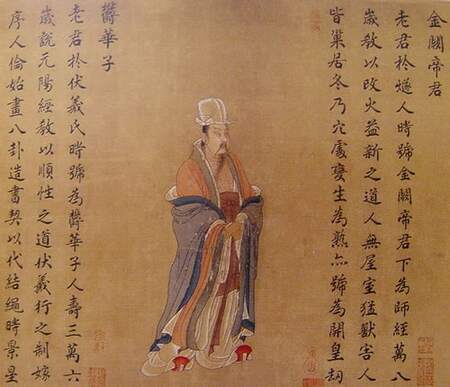 金闕帝君
老君於燧人時號金闕帝君下為師經萬八
歲教以改火益新之道人無屋室猛獸害人
皆巢居冬乃穴處變生為熟亦號為開皇劫
鬱華子
老君於伏羲氏時號為鬱華子人壽三萬六
歲說元陽經教以順性之道伏羲行之制嫁
序人倫始畫八卦造書契以代結繩時景星